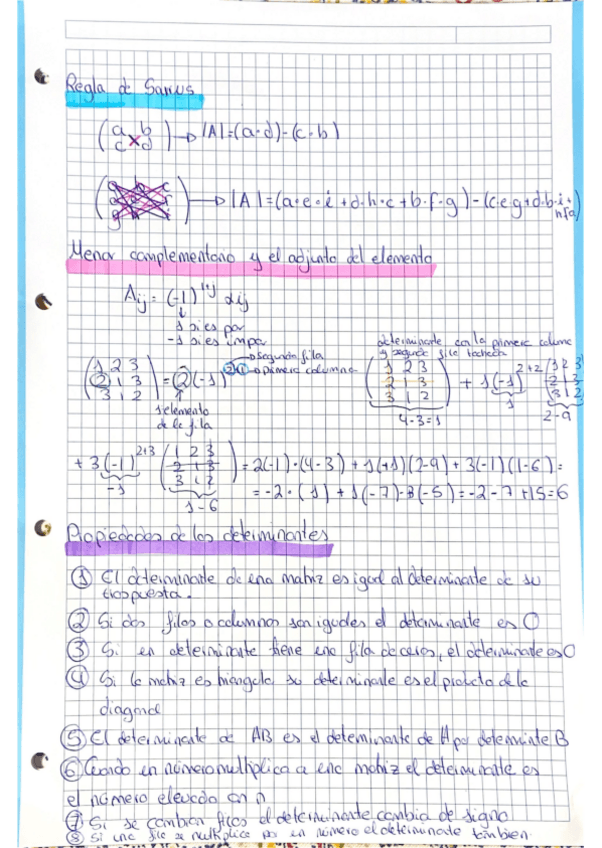 Regla de Sarrus
(a b
c d) → |A|=(a·d)-(c·b)
(a b c
d e f
g h i) → |A|=(a·e·i+d·h·c+b·f·g)-(c·e·g+d·b·i+
h·f·a)
Menor complementario y el adjunto del elemento
Aij = (-1)^ij αij
↓
1 si es par
-1 si es impar
determinante con la primera columna
y segunda fila tachada
→ Segunda fila
→ primera columna
(1 2 3
2 1 3
3 1 2) = 2(-1)^2+1 (1 2 3
2 1 3
3 1 2) + 1(-1)^2+2 (1 2 3
2 1 3
3 1 2)
1 elemento
de la fila
4-3=1
1
2-9
+ 3(-1)^2+3 (1 2 3
2 1 3
3 1 2) = 2(-1)·(4-3) + 1(+1)(2-9) + 3(-1)(1-6) =
-1
1-6
= -2·(1) + 1(-7)-3(-5) = -2-7+15=6
Propiedades de los determinantes
① El determinante de una matriz es igual al determinante de su
traspuesta.
② Si dos filas o columnas son iguales el determinante es 0
③ Si un determinante tiene una fila de ceros, el determinante es 0
④ Si la matriz es triangula su determinante es el producto de la
diagonal
⑤ El determinante de AB es el determinante de A por determinante B
⑥ Cuando un número multiplica a una matriz el determinante es
el número elevado an n
⑦ Si se cambian filas el determinante cambia de signo
⑧ Si una fila se multiplica por un número el determinante tambien